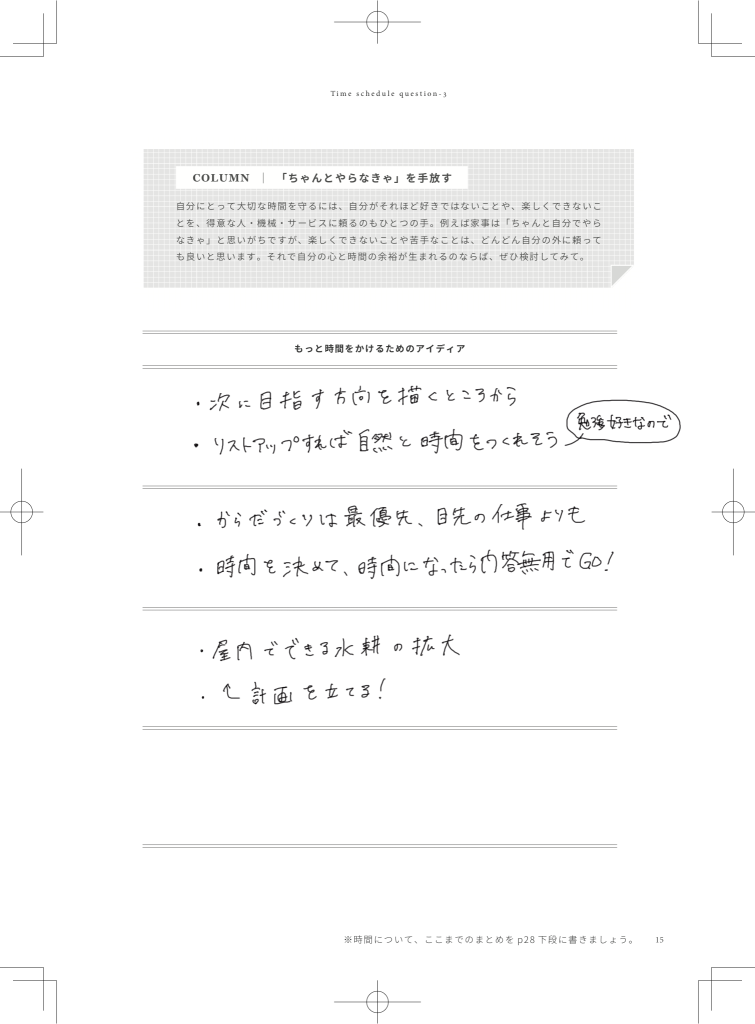 Time schedule question-3
COLUMN ｜ 「ちゃんとやらなきゃ」を手放す
自分にとって大切な時間を守るには、自分がそれほど好きではないことや、楽しくできないこ
とを、得意な人・機械・サービスに頼るのもひとつの手。例えば家事は「ちゃんと自分でやら
なきゃ」と思いがちですが、楽しくできないことや苦手なことは、どんどん自分の外に頼って
も良いと思います。それで自分の心と時間の余裕が生まれるのならば、ぜひ検討してみて。
もっと時間をかけるためのアイディア
・次に目指す方向を描くところから
勉強好きなので
・リストアップすれば自然と時間をつくれそう
・からだづくりは最優先、目先の仕事よりも
・時間を決めて、時間になったら問答無用でGO!
・屋内でできる水耕の拡大
・↑計画を立てる!
※時間について、ここまでのまとめを p28 下段に書きましょう。
15